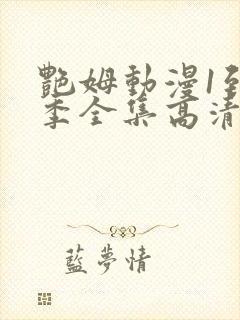 艷姆動漫1到
季全集高清
藍夢情